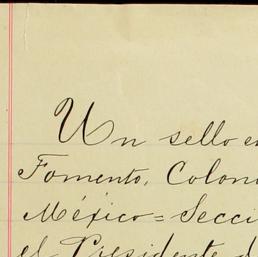 Un sello e
Fomento, Coloni
México = Secci
el Presidente d